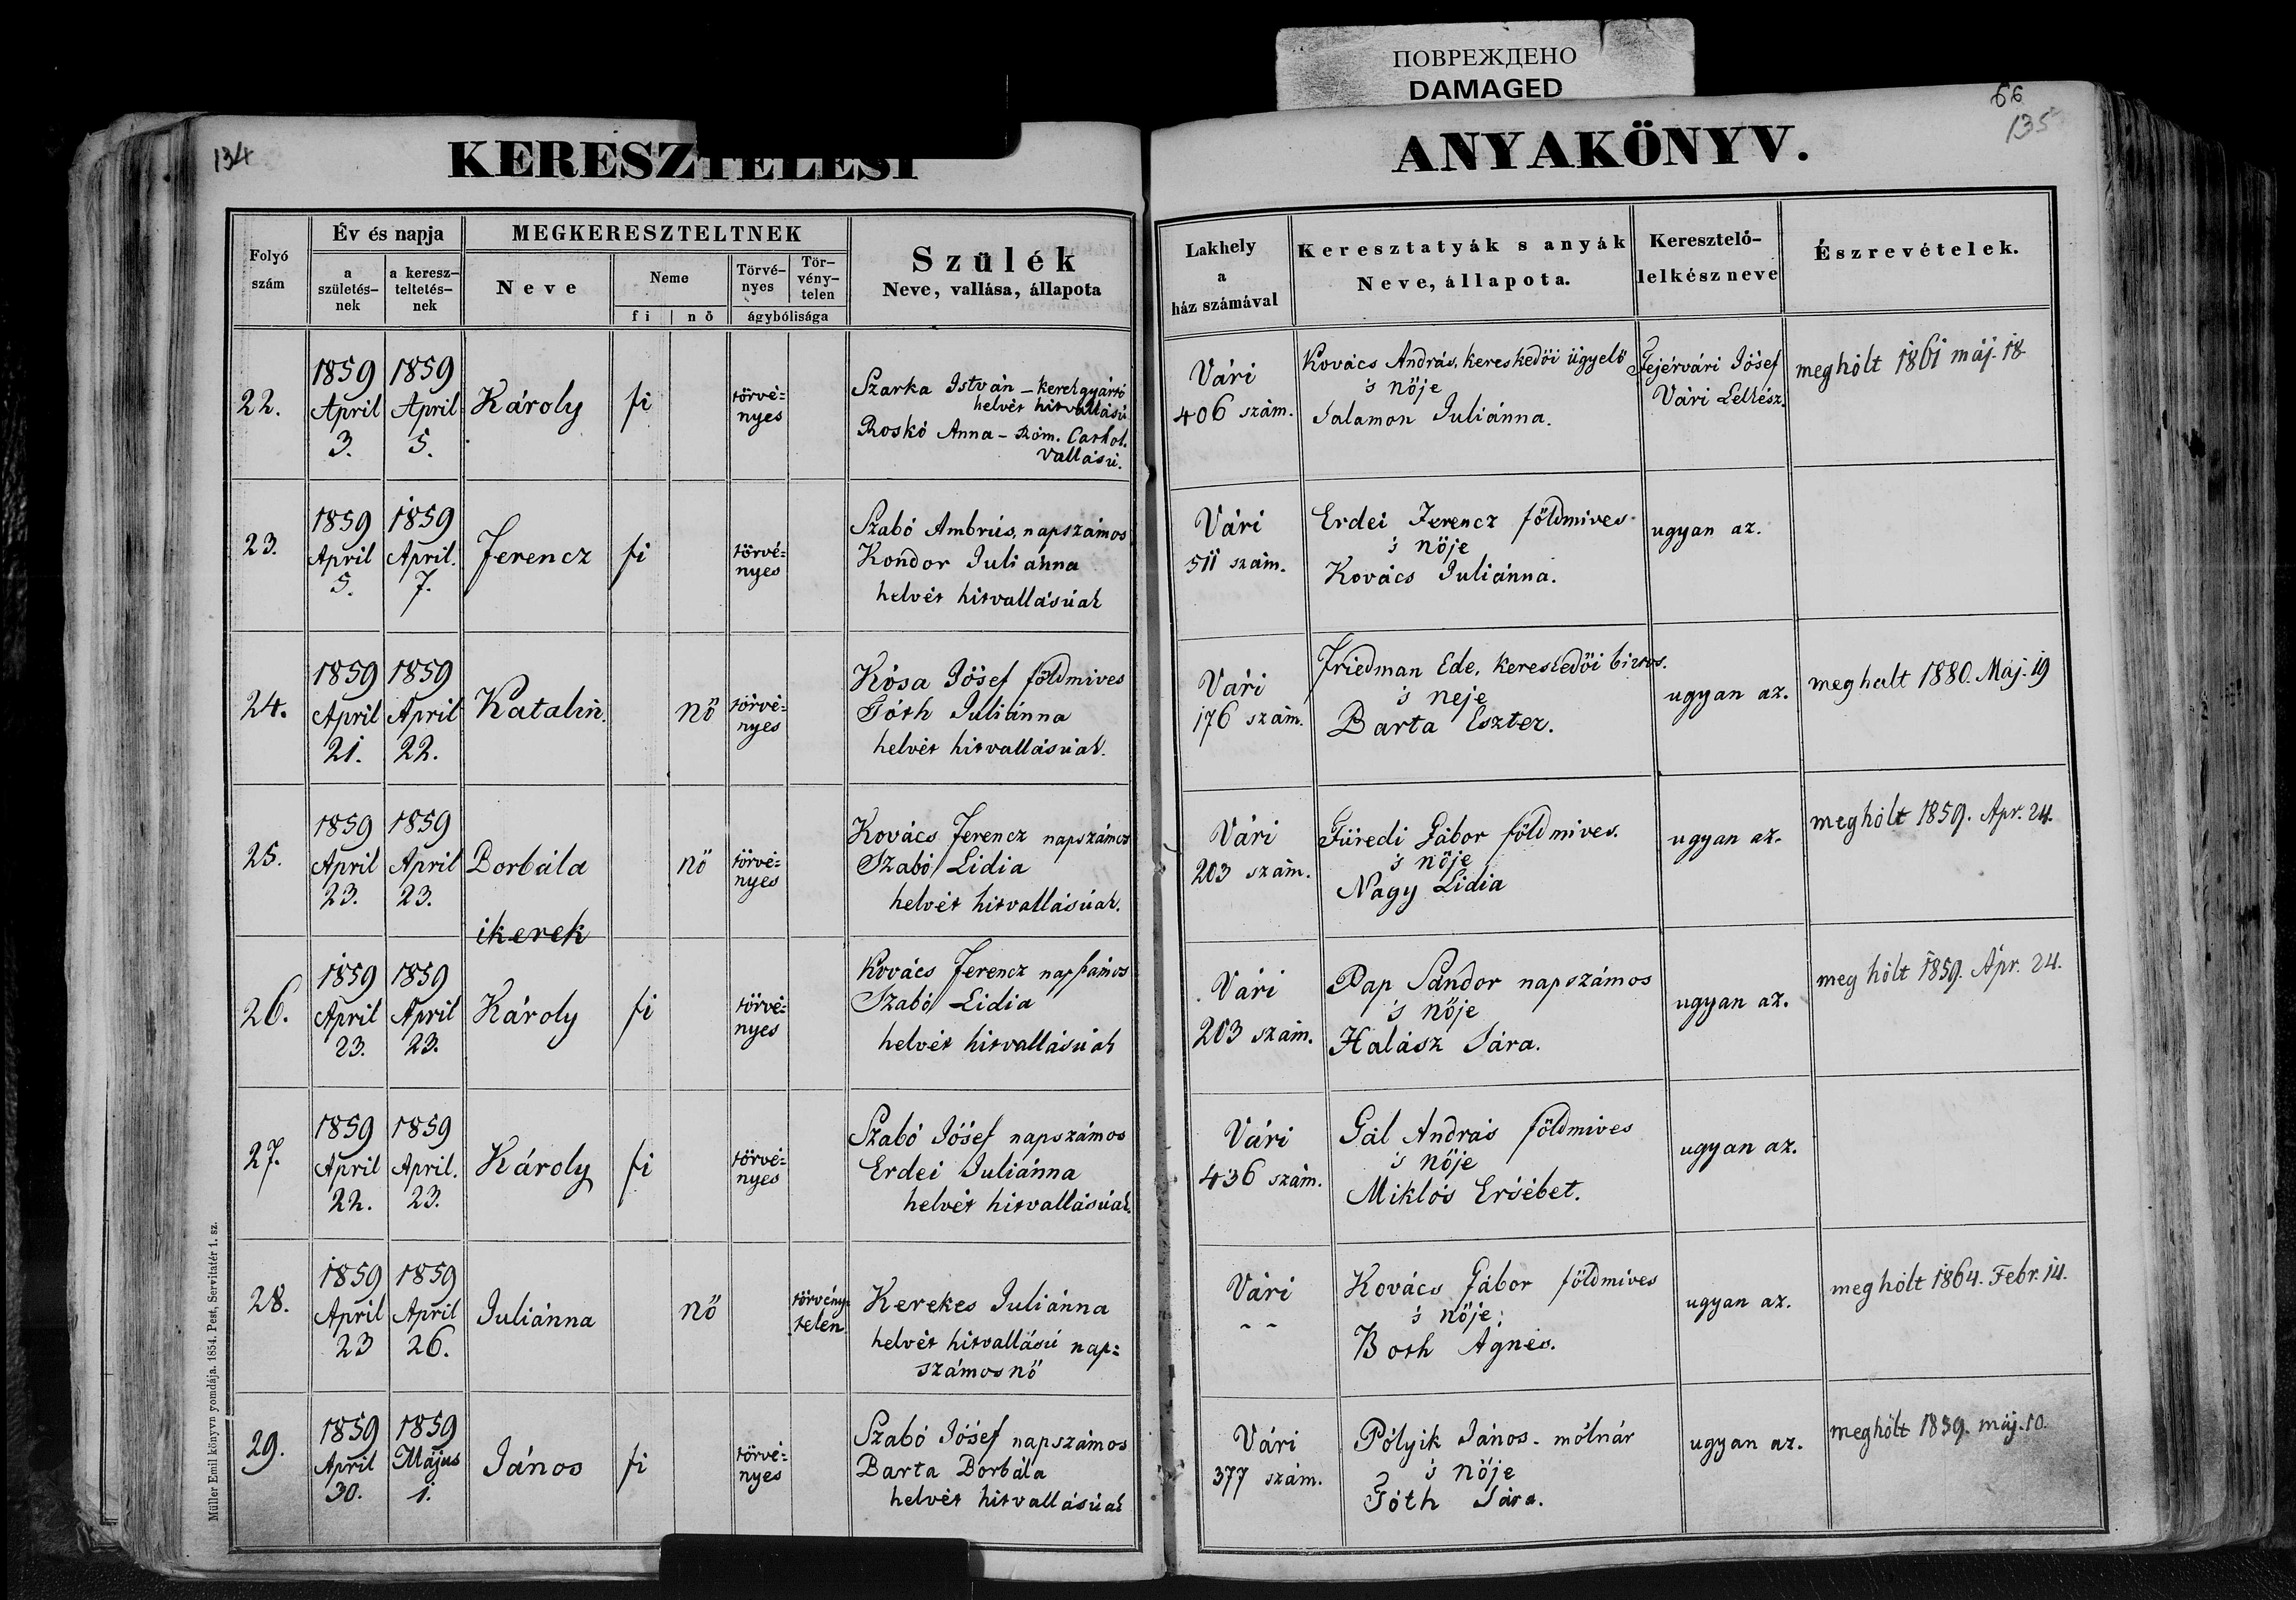 ПОВРЕЖДЕНО
DAMAGED
134
KERESZTELESI
ANYAKÖNYV.
66
135
Folyó
szám
Év és napja
a
születés-
nek
a keresz-
teltetés-
nek
MEGKERESZTELTNEK
Neve
Neme
fi
nő
Törvé-
nyes
Tör-
vény-
telen
ágybólisága
Szülék
Neve, vallása, állapota
Lakhely
a
ház számával
Keresztatyák s anyák
Neve, állapota.
Keresztelő-
lelkész neve
Észrevételek.
22.
1859
April
3.
1859
April
5.
Károly
fi
törvé=
nyes
Szarka István - kerékgyártó
helvét hitvallású
Roskó Anna - Róm. Cathol.
vallású.
Vári
406 szám.
Kovács András, kereskedői ügyelő
's nője
Salamon Juliánna.
Fejérvári Jósef
Vári Lelkész.
meghólt 1861 máj. 18.
23.
1859
April
5.
1859
April.
7.
Ferencz
fi
törvé=
nyes
Szabó Ambrús, napszámos
Kondor Juliánna
helvét hitvallásúak
Vári
511 szám.
Erdei Ferencz földmives
's nője
Kovács Juliánna.
ugyan az.
24.
1859
April
21.
1859
April
22.
Katalin.
nő
törvé=
nyes
Kósa Jósef földmives
Tóth Juliánna
helvét hitvallásúak.
Vári
176 szám.
Friedman Ede, kereskedői bizos.
's neje
Barta Eszter.
ugyan az.
meghalt 1880. Maj. 19
25.
1859
April
23.
1859
April
23.
Borbála
nő
törvé=
nyes
Kovács Ferencz napszámos
Szabó Lidia
helvét hitvallásúak.
Vári
203 szám.
Füredi Gábor földmives.
's nője
Nagy Lidia
ugyan az.
meghólt 1859. Apr. 24.
ikerek
26.
1859
April
23.
1859
April
23.
Károly
fi
törvé=
nyes
Kovács Ferencz napszámos
Szabó Lidia
helvét hitvallásúak
Vári
203 szám.
Pap Sándor napszámos
's nője
Halász Sára.
ugyan az.
meg hólt 1859. Apr. 24.
27.
1859
April
22.
1859
April.
23.
Károly
fi
törvé=
nyes
Szabó Jósef napszámos
Erdei Juliánna
helvét hitvallásúak.
Vári
436 szám.
Gál András földmives
's nője
Miklós Ersébet.
ugyan az.
28.
1859
April
23
1859
April
26.
Juliánna
nő
törvény=
telen
Kerekes Juliánna
helvét hitvallású nap=
számosnő
Vári
- -
Kovács Gábor földmives
's nője;
Both Ágnes.
ugyan az.
meghólt 1864. Febr. 14.
29.
1859
April
30.
1859
Május
1.
János
fi
törvé=
nyes
Szabó Jósef napszámos
Barta Borbála
helvét hitvallásúak
Vári
377 szám.
Pólyik János - mólnár
's nője
Tóth Sára.
ugyan az.
meghólt 1859. máj. 10.
Müller Emil könyvnyomdája. 1854. Pest, Servitatér 1. sz.